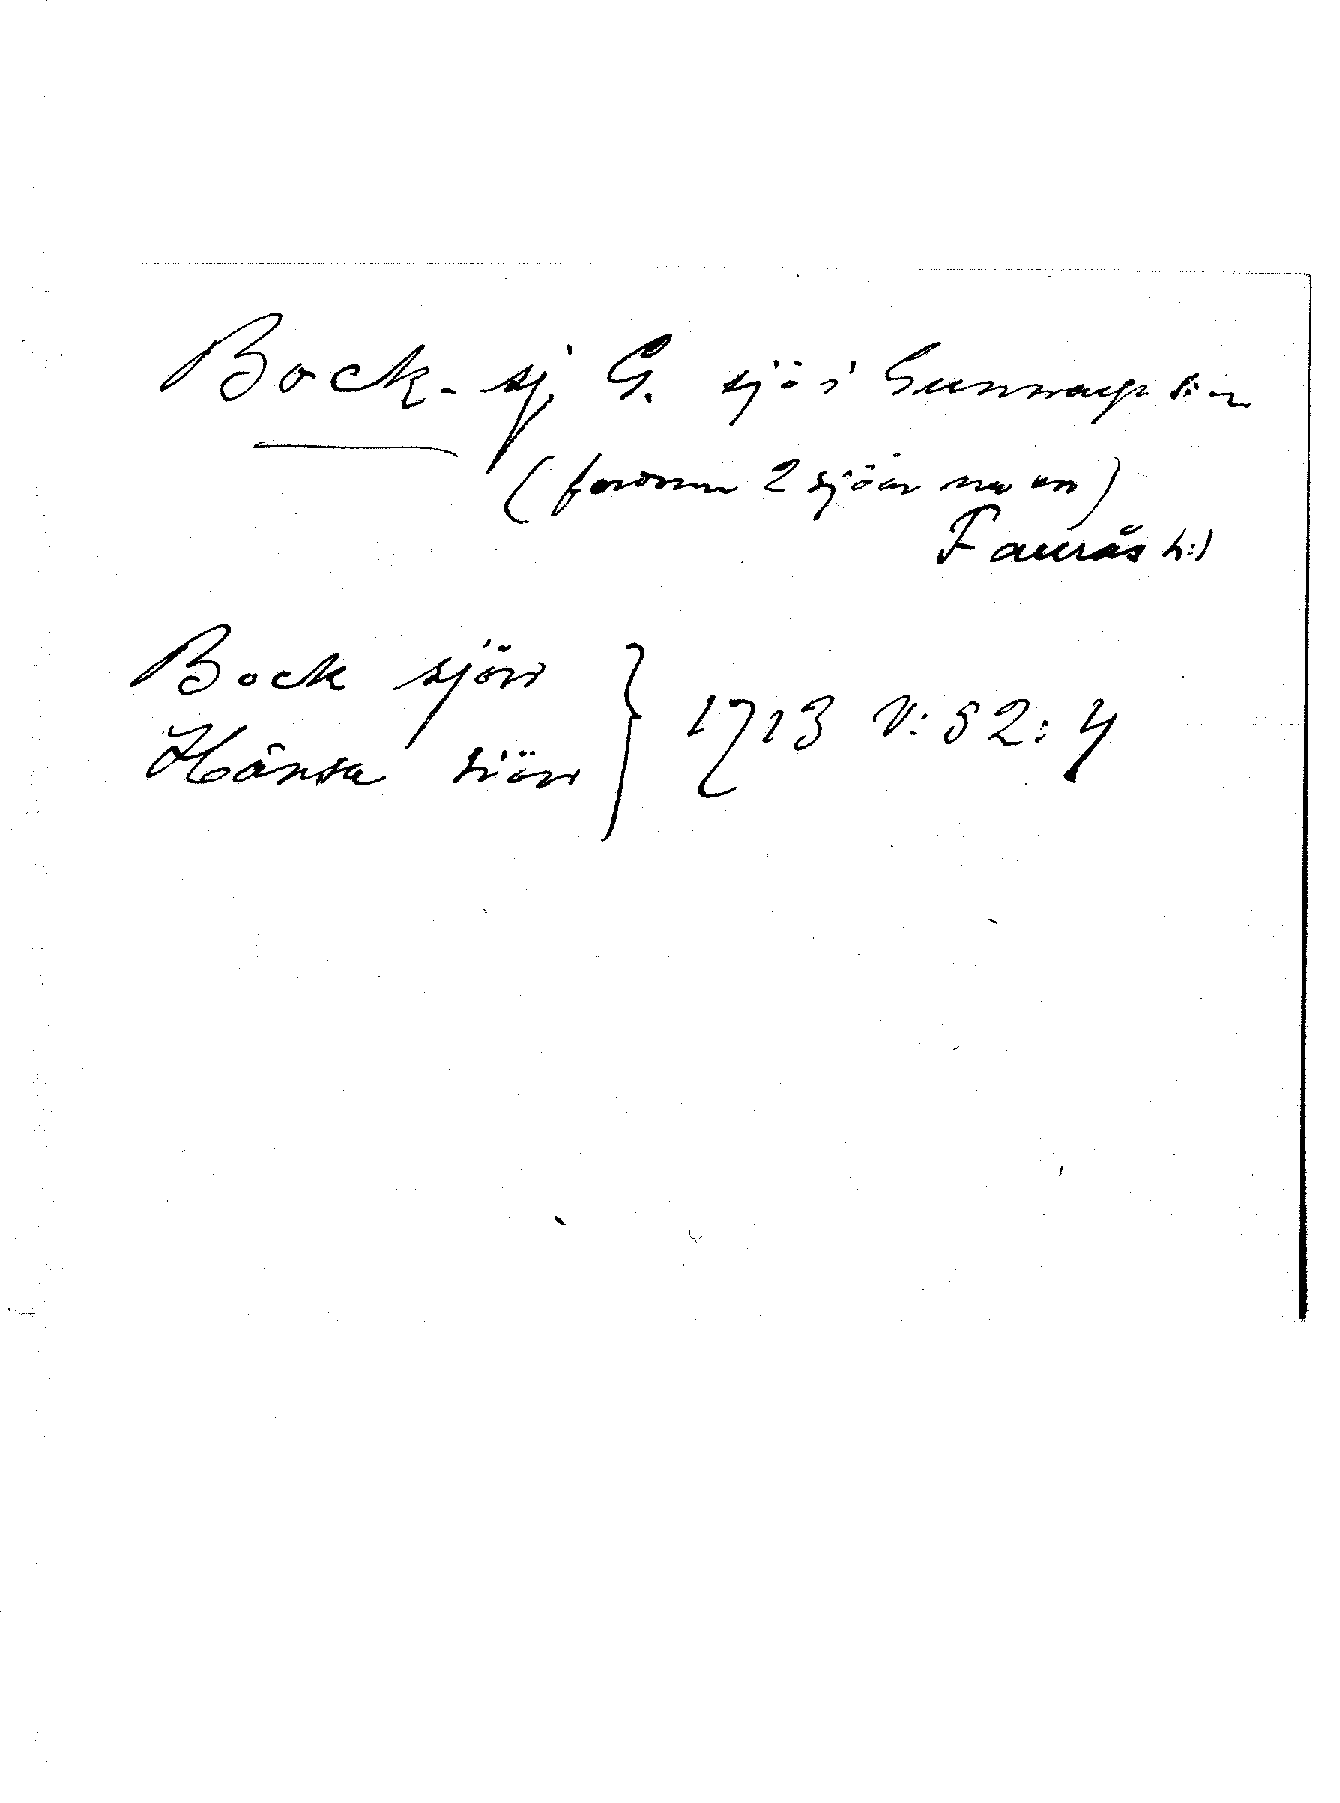 Bock-sj. G. sjö i Gunnarps s:n
(fordom 2 sjöar nu en)
Faurås h:d
Bock sjön
Hånsa siön } 1713 V: S2: 4